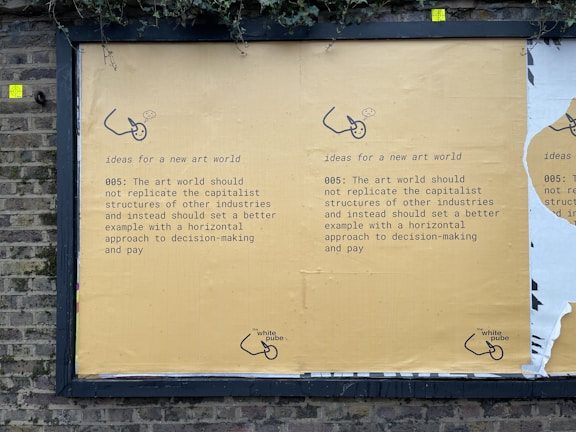 ideas for a new art world
005: The art world should
not replicate the capitalist
structures of other industries
and instead should set a better
example with a horizontal
approach to decision-making
and pay
the
white
pube
ideas for a new art world
005: The art world should
not replicate the capitalist
structures of other industries
and instead should set a better
example with a horizontal
approach to decision-making
and pay
the
white
pube
ideas
005:
not re